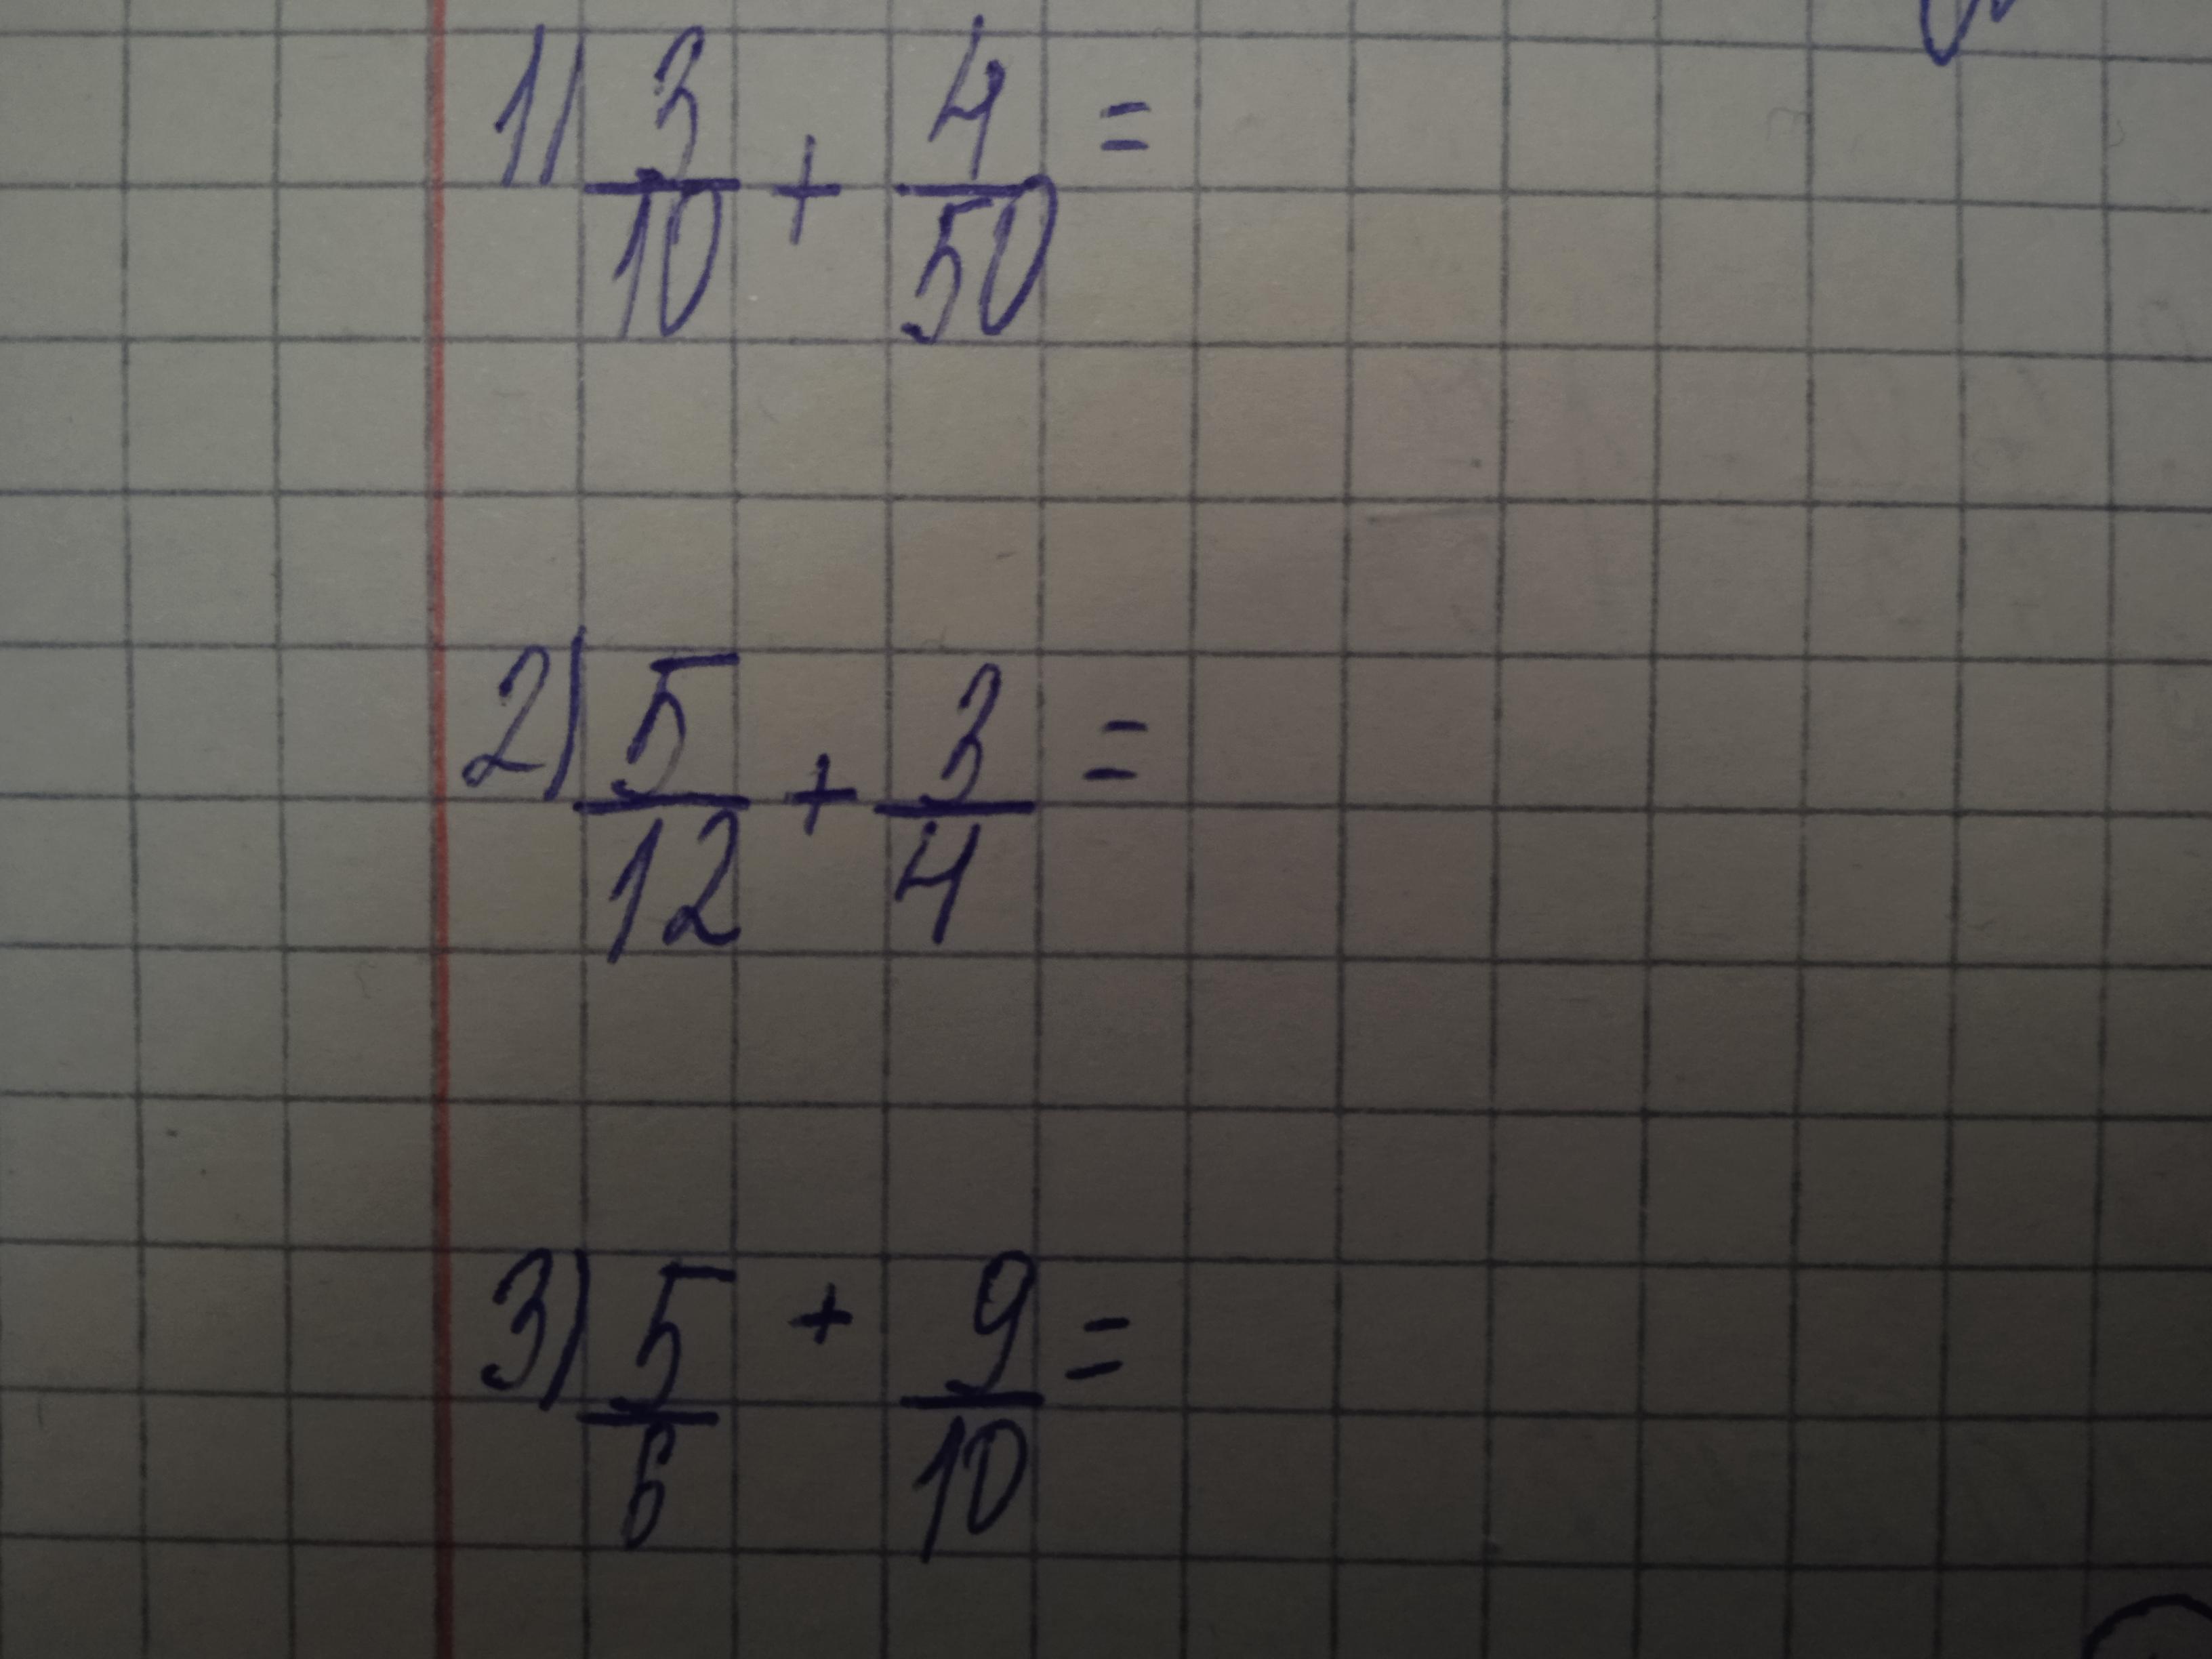 1) 3/10 + 4/50 =
2) 5/12 + 3/4 =
3) 5/6 + 9/10 =